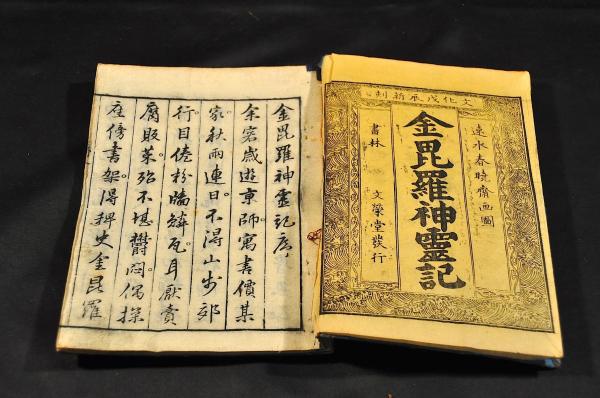 文化戊辰新刻
速水春暁齋画圖
金毘羅神靈記
書林　文榮堂發行
金毘羅神靈記序
余客歳遊京師。寓書價某
家。秋雨連日。不得山步郊
行。目倦粉墻鱗瓦。耳厭賣
腐販菜。殆不堪鬱悶。偶探
座傍書架。得稗史金毘羅